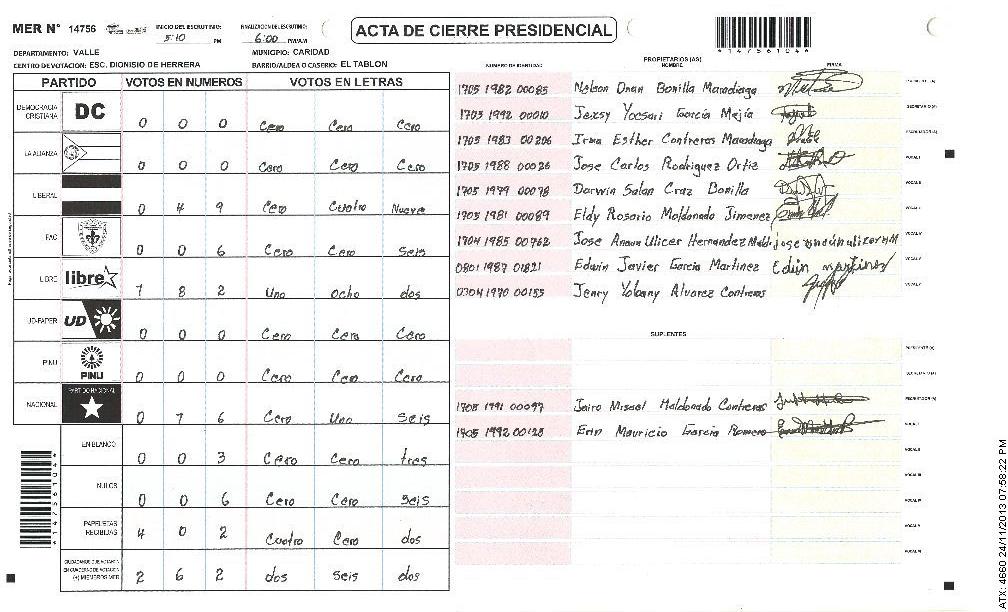 MER N° 14756
INICIO DEL ESCRUTINIO: 5:10 PM
FINALIZACION DEL ESCRUTINIO: 6:00 PM/AM
ACTA DE CIERRE PRESIDENCIAL
14756104
DEPARTAMENTO: VALLE
MUNICIPIO: CARIDAD
CENTRO DE VOTACION: ESC. DIONISIO DE HERRERA
BARRIO/ALDEA O CASERIO: EL TABLON
PARTIDO VOTOS EN NUMEROS VOTOS EN LETRAS
DEMOCRACIA CRISTIANA DC 0 0 0 Cero Cero Cero
LA ALIANZA 0 0 0 Cero Cero Cero
LIBERAL 0 4 9 Cero Cuatro Nueve
PAC 0 0 6 Cero Cero Seis
LIBRE libre 1 8 2 Uno Ocho dos
UD-FAPER UD 0 0 0 Cero Cero Cero
PINU PINU 0 0 0 Cero Cero Cero
NACIONAL PARTIDO NACIONAL 0 1 6 Cero Uno Seis
EN BLANCO 0 0 3 Cero Cero tres
NULOS 0 0 6 Cero Cero Seis
PAPELETAS RECIBIDAS 4 0 2 Cuatro Cero dos
CIUDADANOS QUE VOTARON EN CUADERNO DE VOTACION (+) MIEMBROS MER 2 6 2 dos seis dos
PROPIETARIOS (AS)
NUMERO DE IDENTIDAD NOMBRE FIRMA
1705 1982 00085 Nelson Onan Bonilla Maradiaga
1705 1992 00010 Jexsy Yocsari Garcia Mejia
1705 1983 00206 Irma Esther Contreras Maradiaga
1705 1988 00026 Jose Carlos Rodriguez Ortiz
1705 1979 00078 Darwin Solan Cruz Bonilla
1705 1981 00089 Eldy Rosario Maldonado Jimenez
1704 1985 00762 Jose Ulicer Hernandez
0801 1987 01821 Edwin Javier Garcia Martinez
0304 1970 00155 Jenry Alvarez Contreras
SUPLENTES
1705 1991 00097 Jairo Misael Maldonado Contreras
1705 1992 00128 Erin Mauricio Garcia Romero
14756104
ATX: 4660 24/11/2013 07:58:22 PM